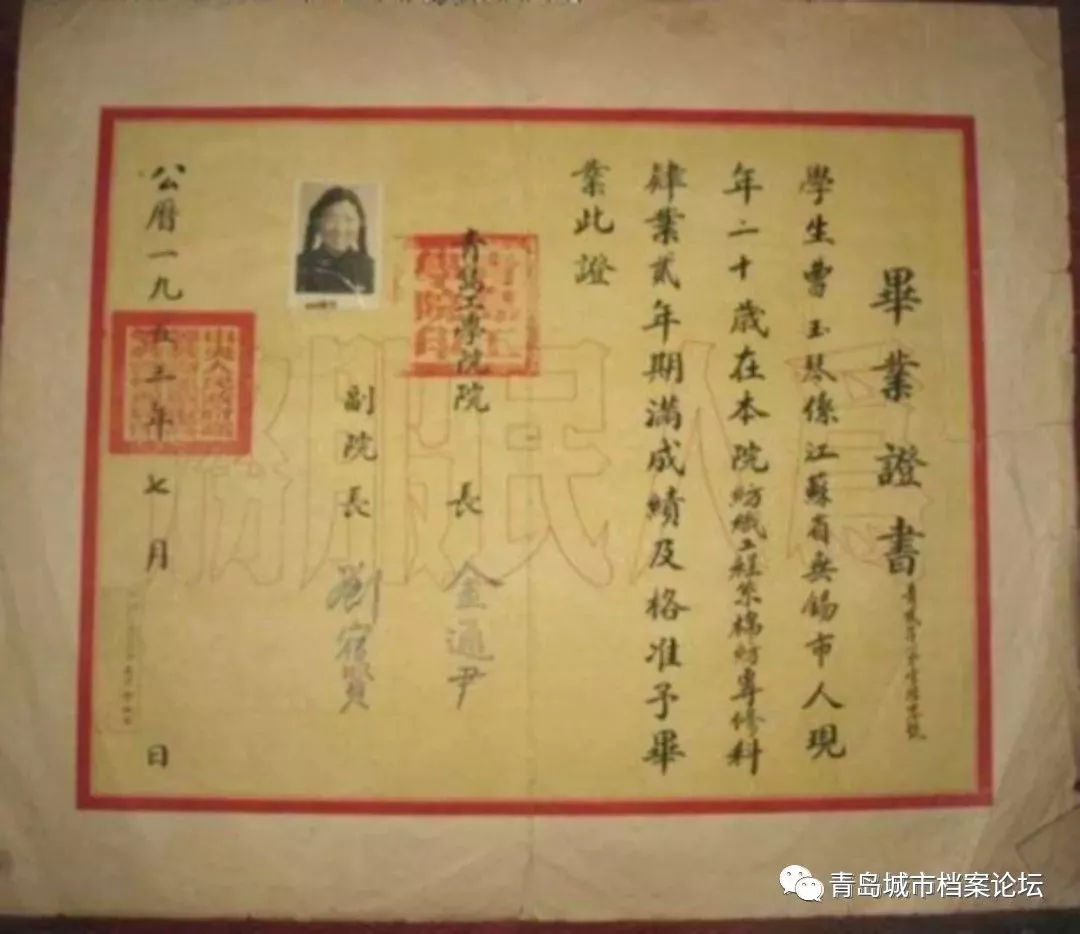 畢業證書
學生曹玉琴係江蘇省無錫市人現
年二十歲在本院紡織工程系棉紡專修科
肄業貳年期滿成績及格准予畢
業此證
青島工學院院長 金通尹
副院長 劉宿賢
公曆一九五三年七月 日
為人民服務
青岛城市档案论坛